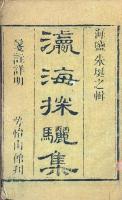 海鹽朱埏之輯
瀛海探驪集
箋註詳明
怡山館刊